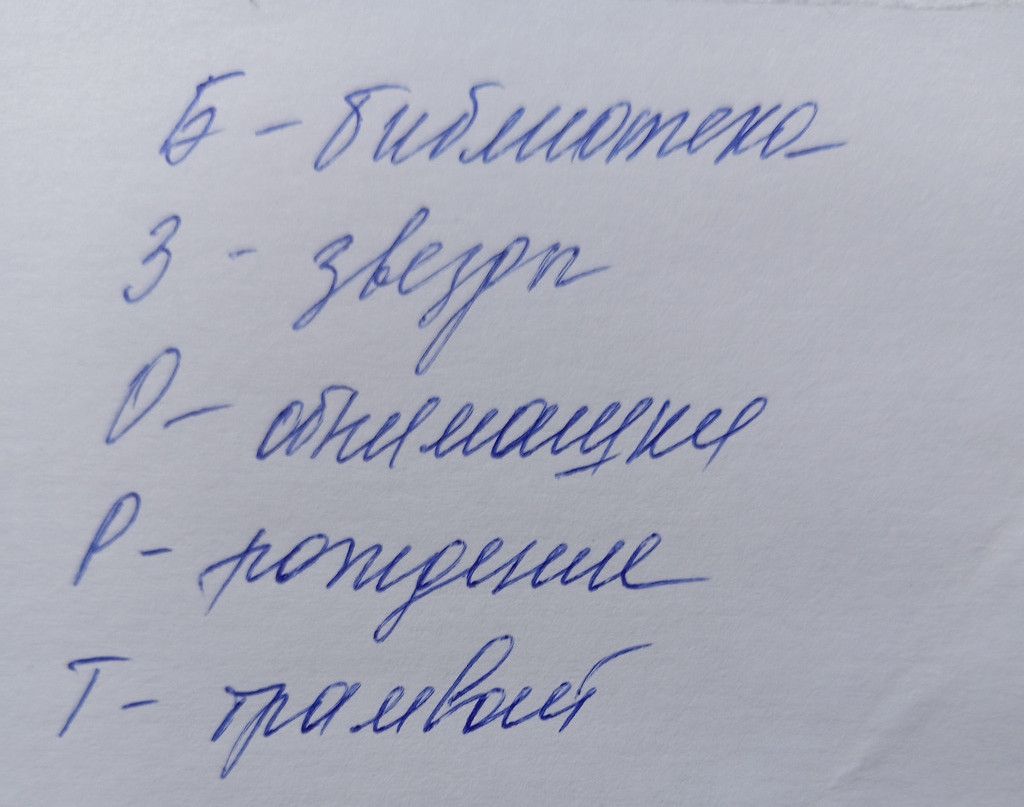 Б - библиотека
З - звезды
О - обнимашки
Р - рождение
Т - трамвай